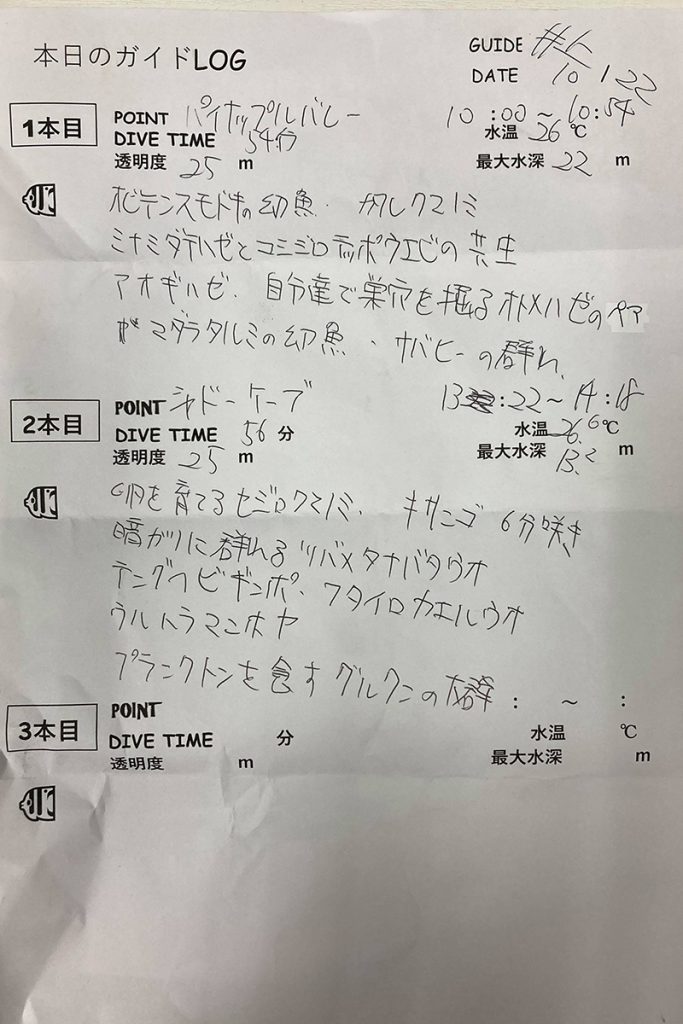 本日のガイドLOG
GUIDE
DATE 10 / 22
1本目
POINT パイナップルバレー 10:00~10:54
DIVE TIME 54分 水温 26 ℃
透明度 25 m 最大水深 22 m
オビテンスモドキの幼魚. カクレクマノミ
ミナミダテハゼとコシジロテッポウエビの共生
アオギハゼ. 自分達で巣穴を掘るオトメハゼのペア
マダラタルミの幼魚. サバヒーの群れ.
2本目
POINT シャドーケーブ 13:22~14:18
DIVE TIME 56 分 水温 26.6 ℃
透明度 25 m 最大水深 13.2 m
卵を育てるセジロクマノミ. キサンゴ 6分咲き
暗がりに群れるツバメタナバタウオ
テングヘビギンポ. フタイロカエルウオ
ウルトラマンホヤ
プランクトンを食す グルクンの大群
3本目
POINT : ~ :
DIVE TIME 分 水温 ℃
透明度 m 最大水深 m